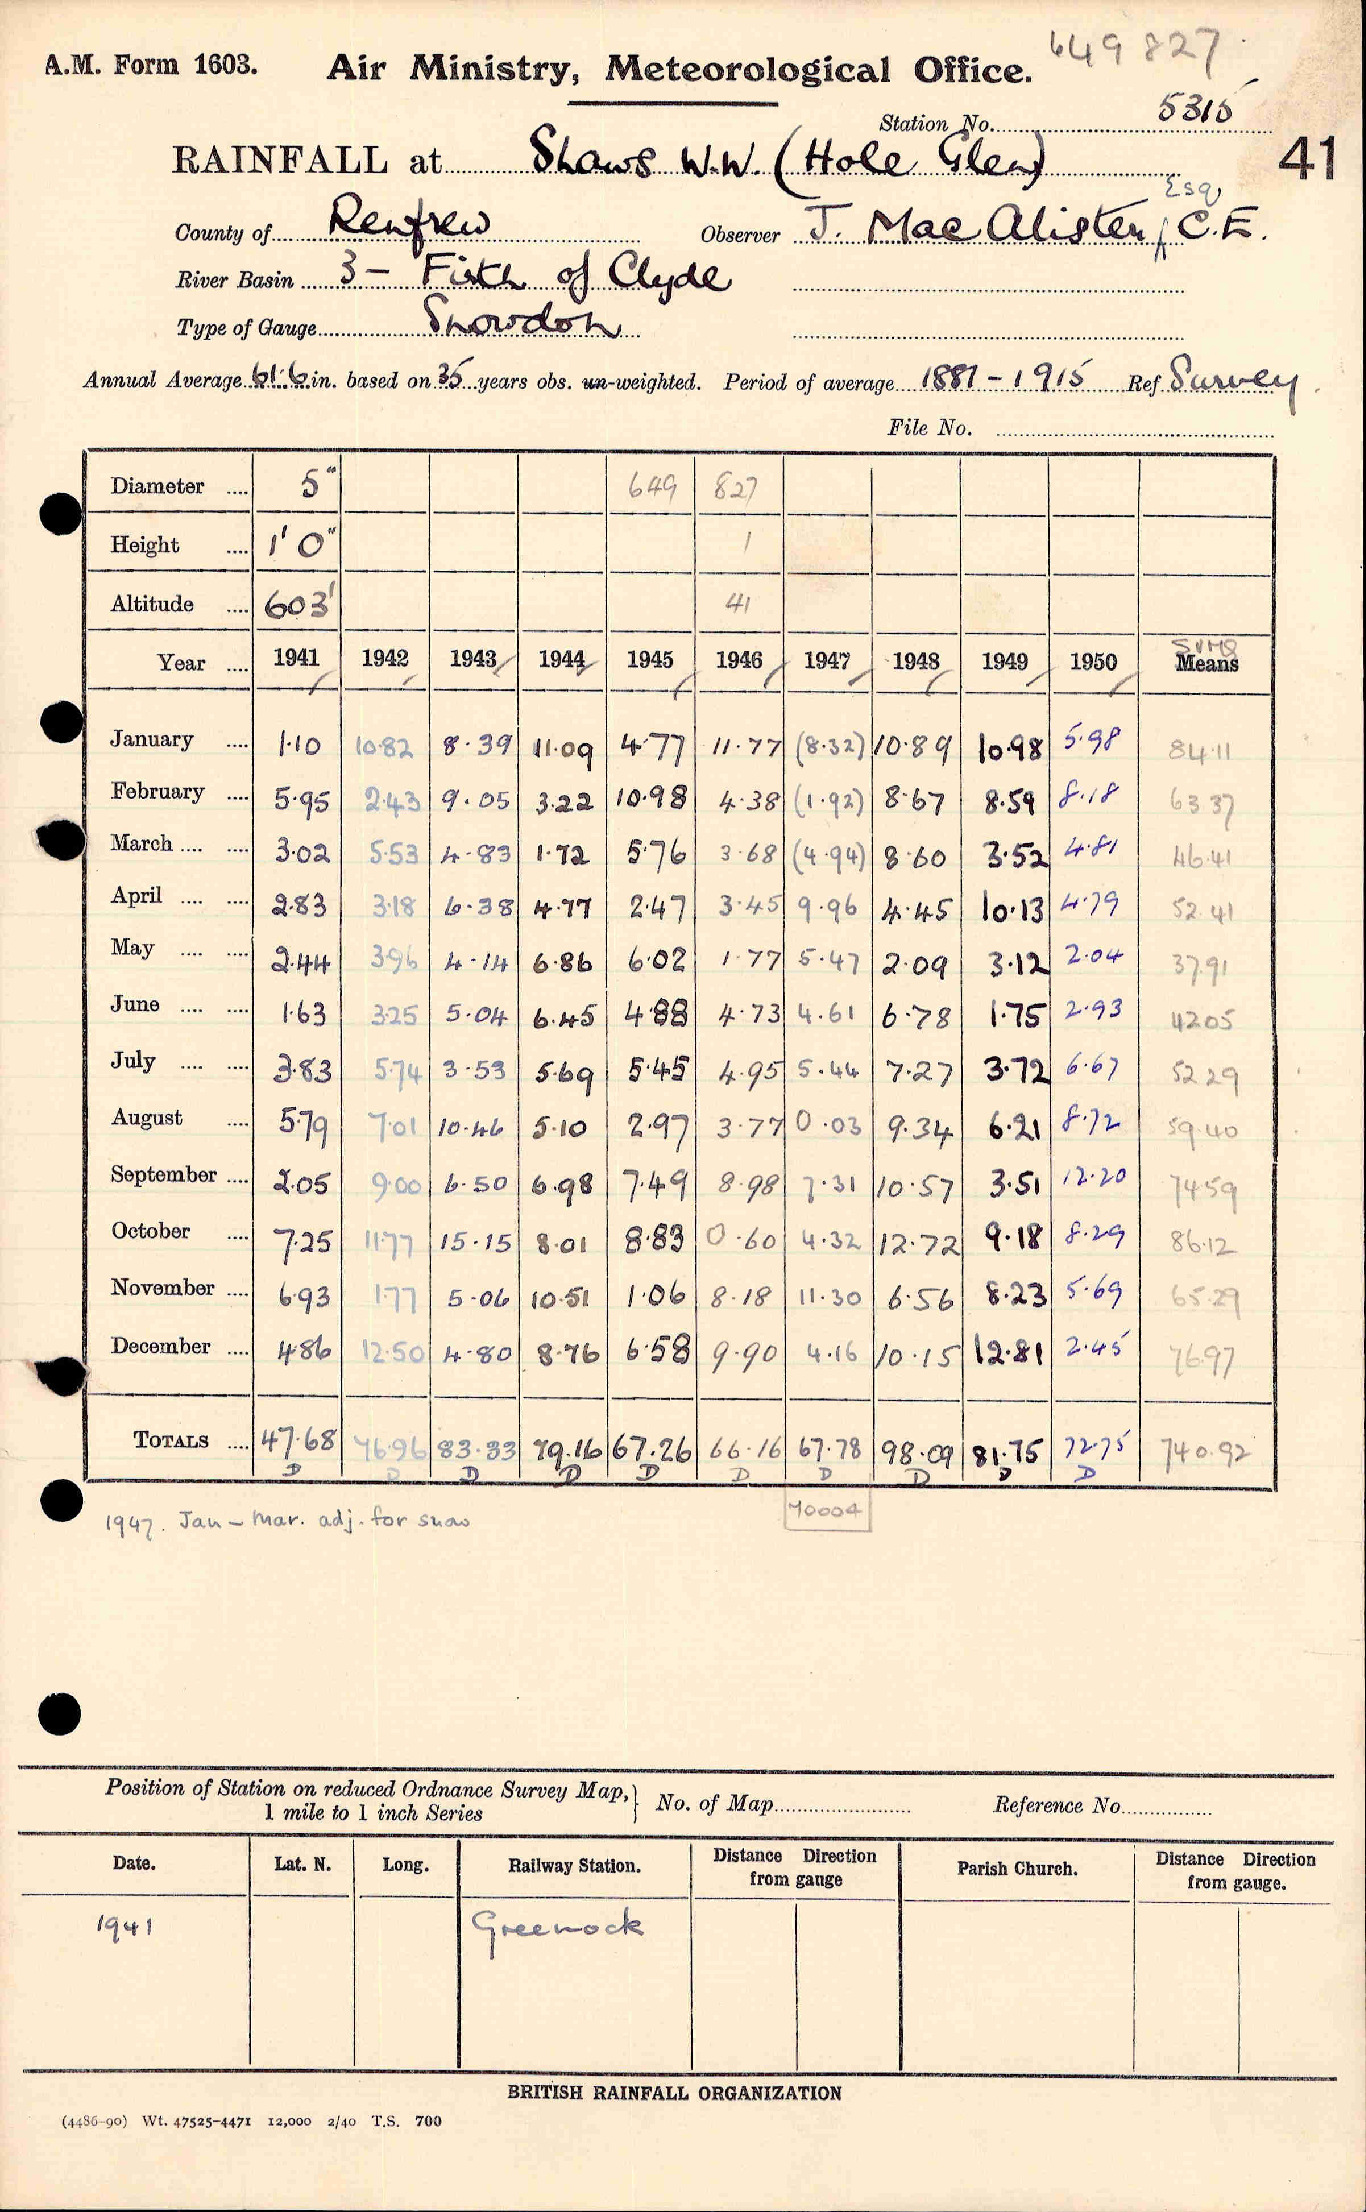 649 827
A.M. Form 1603. Air Ministry, Meteorological Office.
Station No. 5315
RAINFALL at Shaws W.W. (Hole Glen) 41
County of Renfrew Observer J. MacAlister, Esq C.E.
River Basin 3 - Firth of Clyde
Type of Gauge Snowdon
Annual Average 61.6 in. based on 35 years obs. un-weighted. Period of average 1881-1915 Ref Survey
File No.
Diameter .... 5" 649 827
Height .... 1' 0" 1
Altitude .... 603' 41
Year .... 1941 1942 1943 1944 1945 1946 1947 1948 1949 1950 Means SUMS
January .... 1.10 10.82 8.39 11.09 4.77 11.77 (8.32) 10.89 10.98 5.98 84.11
February .... 5.95 2.43 9.05 3.22 10.98 4.38 (1.92) 8.67 8.59 8.18 63.37
March .... .... 3.02 5.53 4.83 1.72 5.76 3.68 (4.94) 8.60 3.52 4.81 46.41
April .... .... 2.83 3.18 6.38 4.77 2.47 3.45 9.96 4.45 10.13 4.79 52.41
May .... .... 2.44 3.96 4.14 6.86 6.02 1.77 5.47 2.09 3.12 2.04 37.91
June .... .... 1.63 3.25 5.04 6.45 4.88 4.73 4.61 6.78 1.75 2.93 42.05
July .... .... 3.83 5.74 3.53 5.69 5.45 4.95 5.44 7.27 3.72 6.67 52.29
August .... 5.79 7.01 10.46 5.10 2.97 3.77 0.03 9.34 6.21 8.72 59.40
September .... 2.05 9.00 6.50 6.98 7.49 8.98 7.31 10.57 3.51 12.20 74.59
October .... 7.25 11.77 15.15 8.01 8.83 0.60 4.32 12.72 9.18 8.29 86.12
November .... 6.93 1.77 5.06 10.51 1.06 8.18 11.30 6.56 8.23 5.69 65.29
December .... 4.86 12.50 4.80 8.76 6.58 9.90 4.16 10.15 12.81 2.45 76.97
TOTALS .... 47.68 76.96 83.33 79.16 67.26 66.16 67.78 98.09 81.75 72.75 740.92
D D D D D D D D D D
1947. Jan - Mar. adj. for snow 70004
Position of Station on reduced Ordnance Survey Map,} No. of Map Reference No.
1 mile to 1 inch Series
Date. Lat. N. Long. Railway Station. Distance from gauge Direction Parish Church. Distance Direction from gauge.
1941 Greenock
BRITISH RAINFALL ORGANIZATION
(4486-90) Wt. 47525-4471 12,000 2/40 T.S. 700